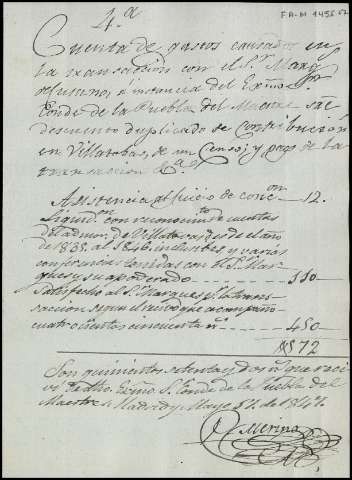 4.ª
FR-M 1456
Cuenta de gastos causados en
la transaccion con el S.r Marq.s
a instancia del Exmo S.r
Conde de la Puebla del Maestre s̃re
descuento duplicado de Contribucion
en Villatobas, de un Censo; y pago de la
transacion &.ª
Asistencia al juicio de con.on 12.
liquid.on con reconocim.to de cuentas
del adm.or de Villatobas desde el año
de 1835 al 1846 inclusibes y varias
conferencias tenidas con el S.r Mar-
ques y su apoderado 110
Satisfecho al S.r Marques p.r la trans-
accion segun el recibo que acompaño
cuatrocientos cincuenta r.s 450
572
Son quinientos setenta y dos r.s que reci-
vi de dho. Exmo S. Conde de la Puebla del
Maestre Madrid y Mayo 31 de 1847.
Merino